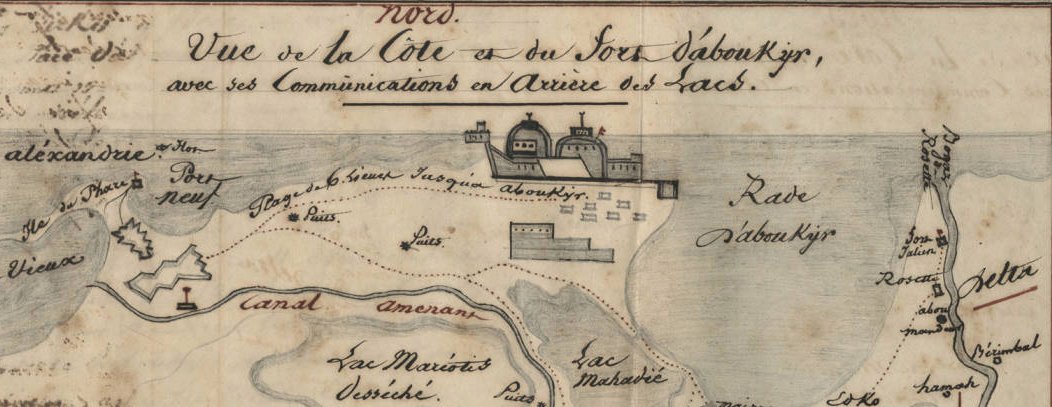 nord.
Vue de la Côte et du Fort d'abouKÿr,
avec ses Communications en Arrière des Lacs.
aléxandrie.
Port
neuf
Ile du Phare
Vieux
Plage de 6 Lieues Jusqu'a abouKÿr.
Puits
Puits.
Rade
D'abouKÿr
Rosette
Fort
Julien
Rosette
abou
mandour
Delta
Bérimbal
Canal amenant
Lac Mariotis
Desséché.
Puits
Lac
Mahadié
EdKo